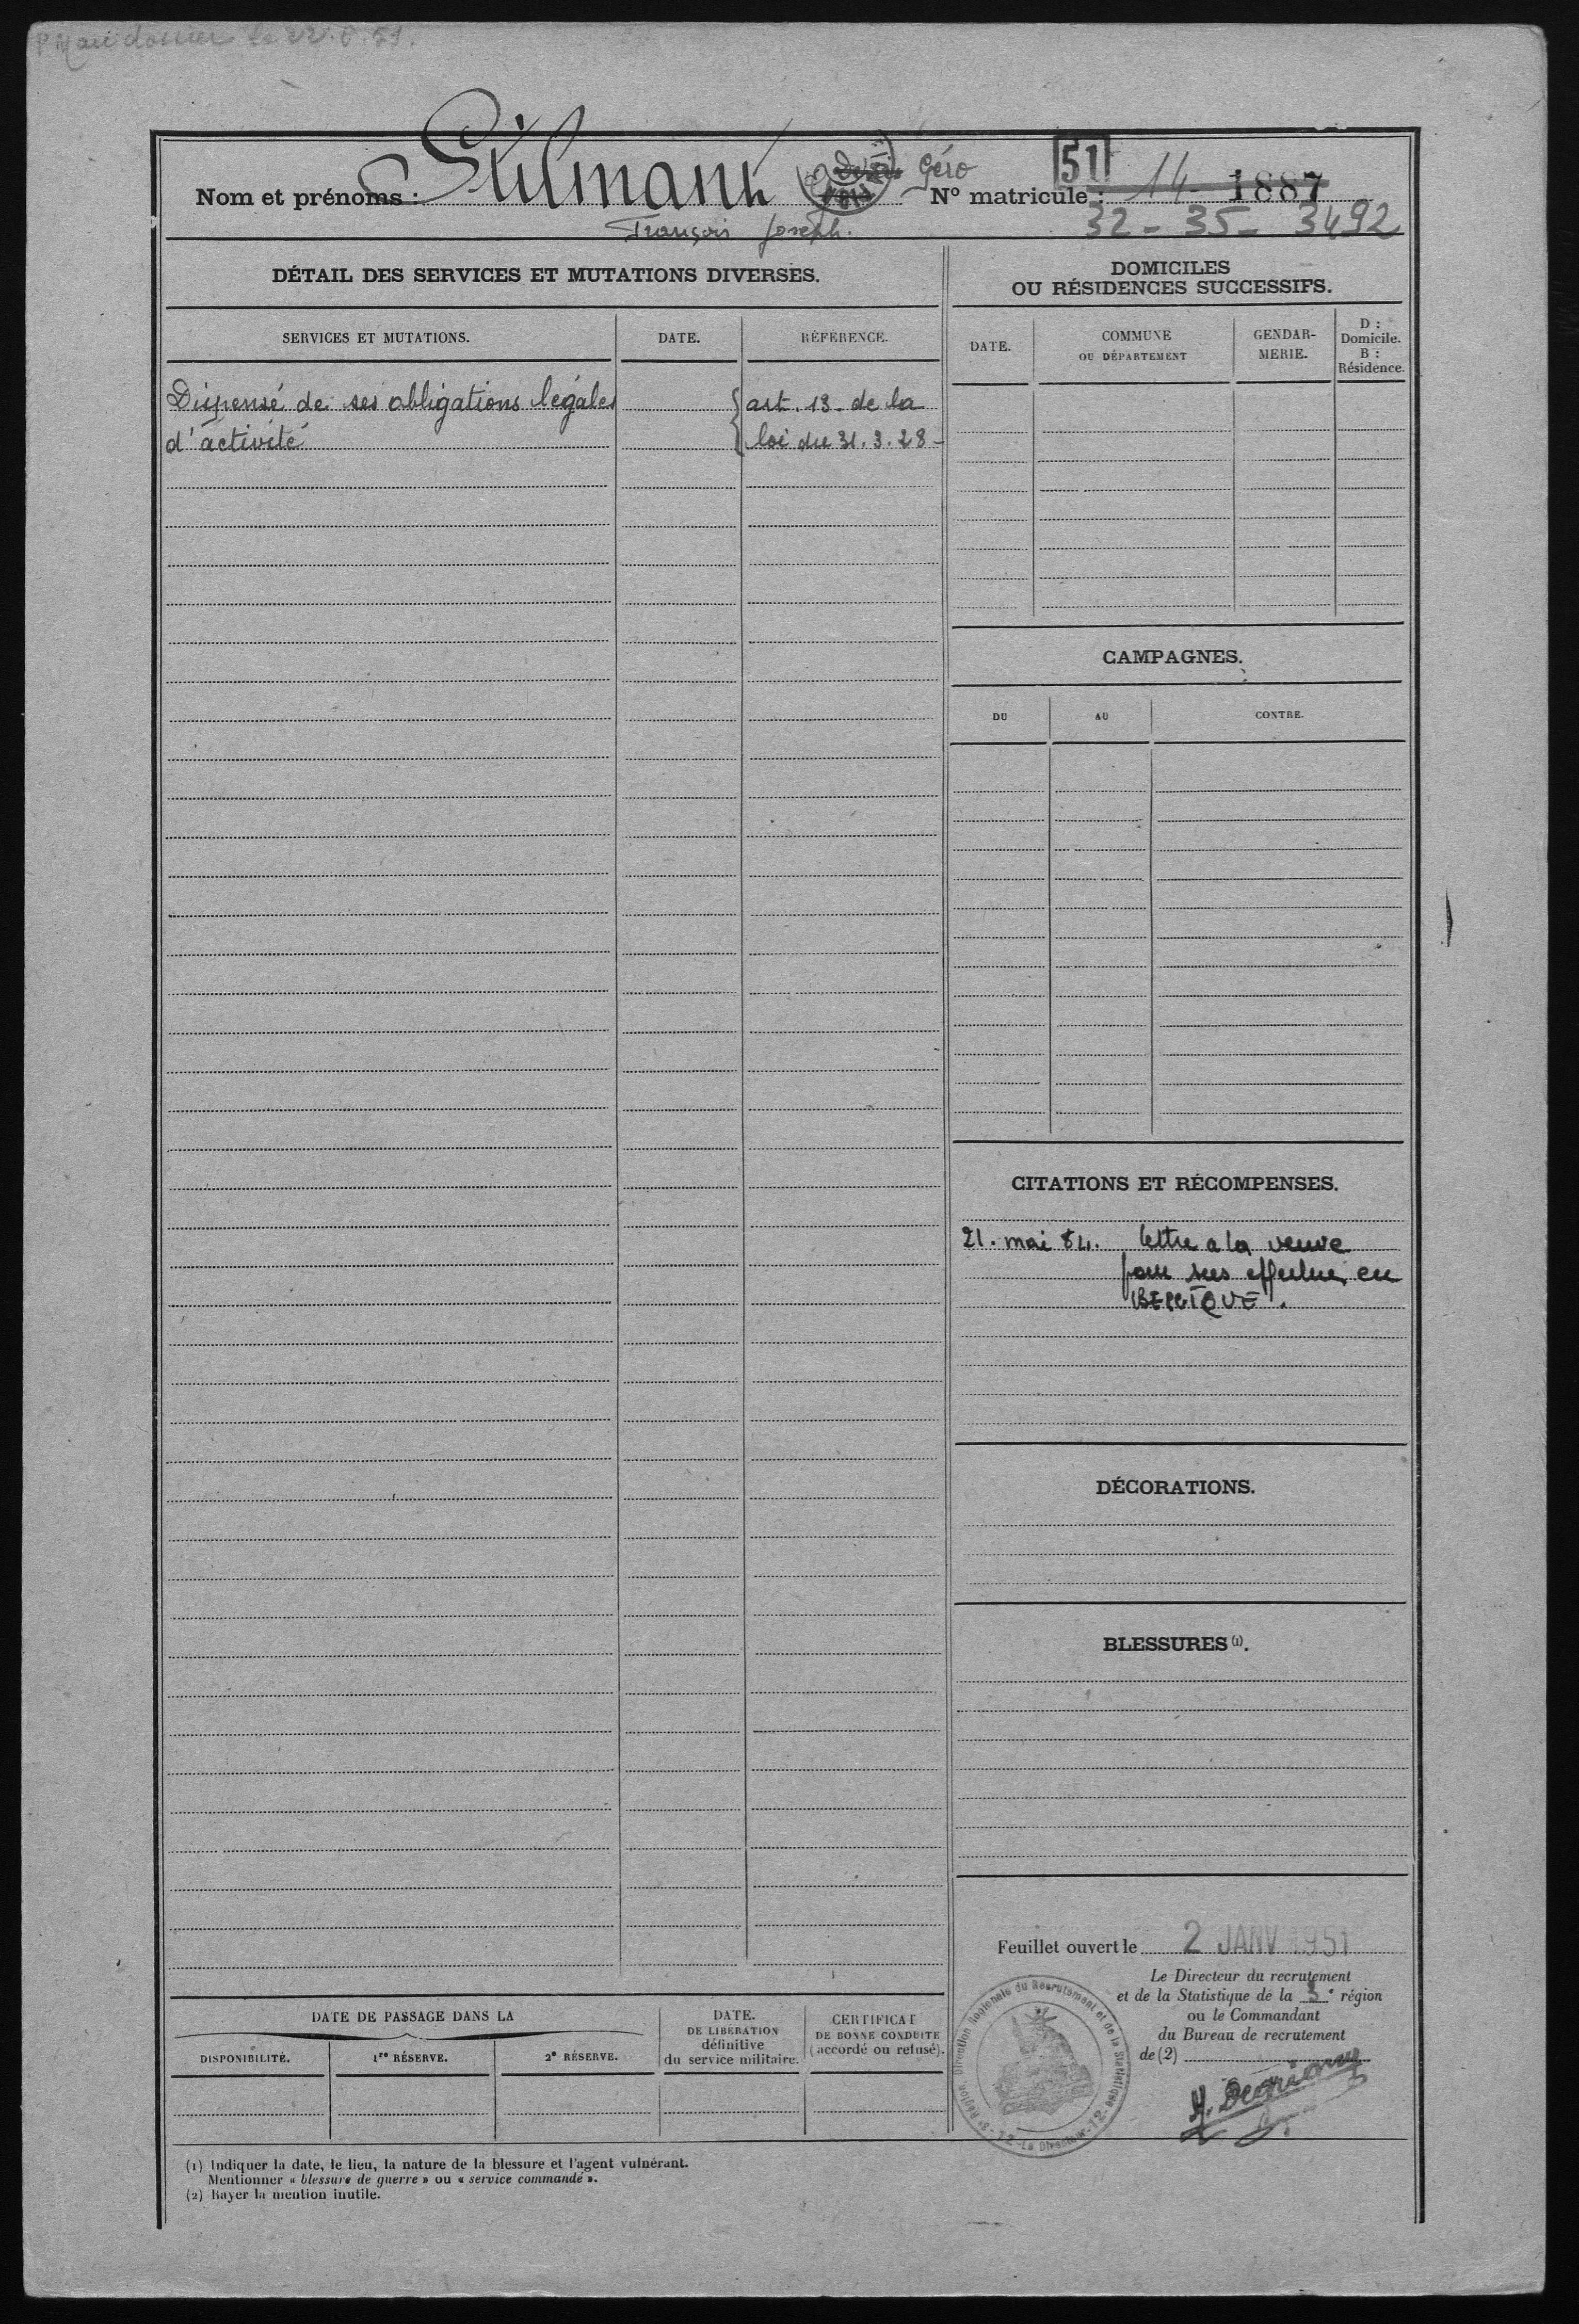 au dossier le
Stilmant Géro 51 14 1887
Nom et prénoms : N° matricule :
François Joseph. 32 - 35 - 3492
DÉTAIL DES SERVICES ET MUTATIONS DIVERSES.
SERVICES ET MUTATIONS. DATE. RÉFÉRENCE.
Dispensé de ses obligations légales art. 13 de la
d'activité loi du 31.3.28 -
DOMICILES
OU RÉSIDENCES SUCCESSIFS.
DATE. COMMUNE
OU DÉPARTEMENT
GENDAR-
MERIE.
D :
Domicile.
B :
Résidence.
CAMPAGNES.
DU AU CONTRE.
CITATIONS ET RÉCOMPENSES.
21. mai 84. lettre a la veuve
en
BELGIQUE.
DÉCORATIONS.
BLESSURES (1).
Feuillet ouvert le 2 JANV 1951
Le Directeur du recrutement
et de la Statistique de la 3e région
ou le Commandant
du Bureau de recrutement
de (2)
3e Région. Direction Régionale du Recrutement et de la Statistique - 12 - Le Directeur - 12 -
DATE DE PASSAGE DANS LA
DISPONIBILITÉ. 1re RÉSERVE. 2e RÉSERVE.
DATE.
DE LIBÉRATION
définitive
du service militaire.
CERTIFICAT
DE BONNE CONDUITE
(accordé ou refusé).
(1) Indiquer la date, le lieu, la nature de la blessure et l'agent vulnérant.
Mentionner « blessure de guerre » ou « service commandé ».
(2) Rayer la mention inutile.